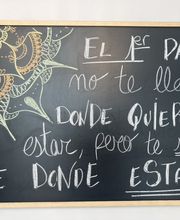 EL 1er PA
no te lle
DONDE QUIER
estar, pero te s
E DONDE ESTA